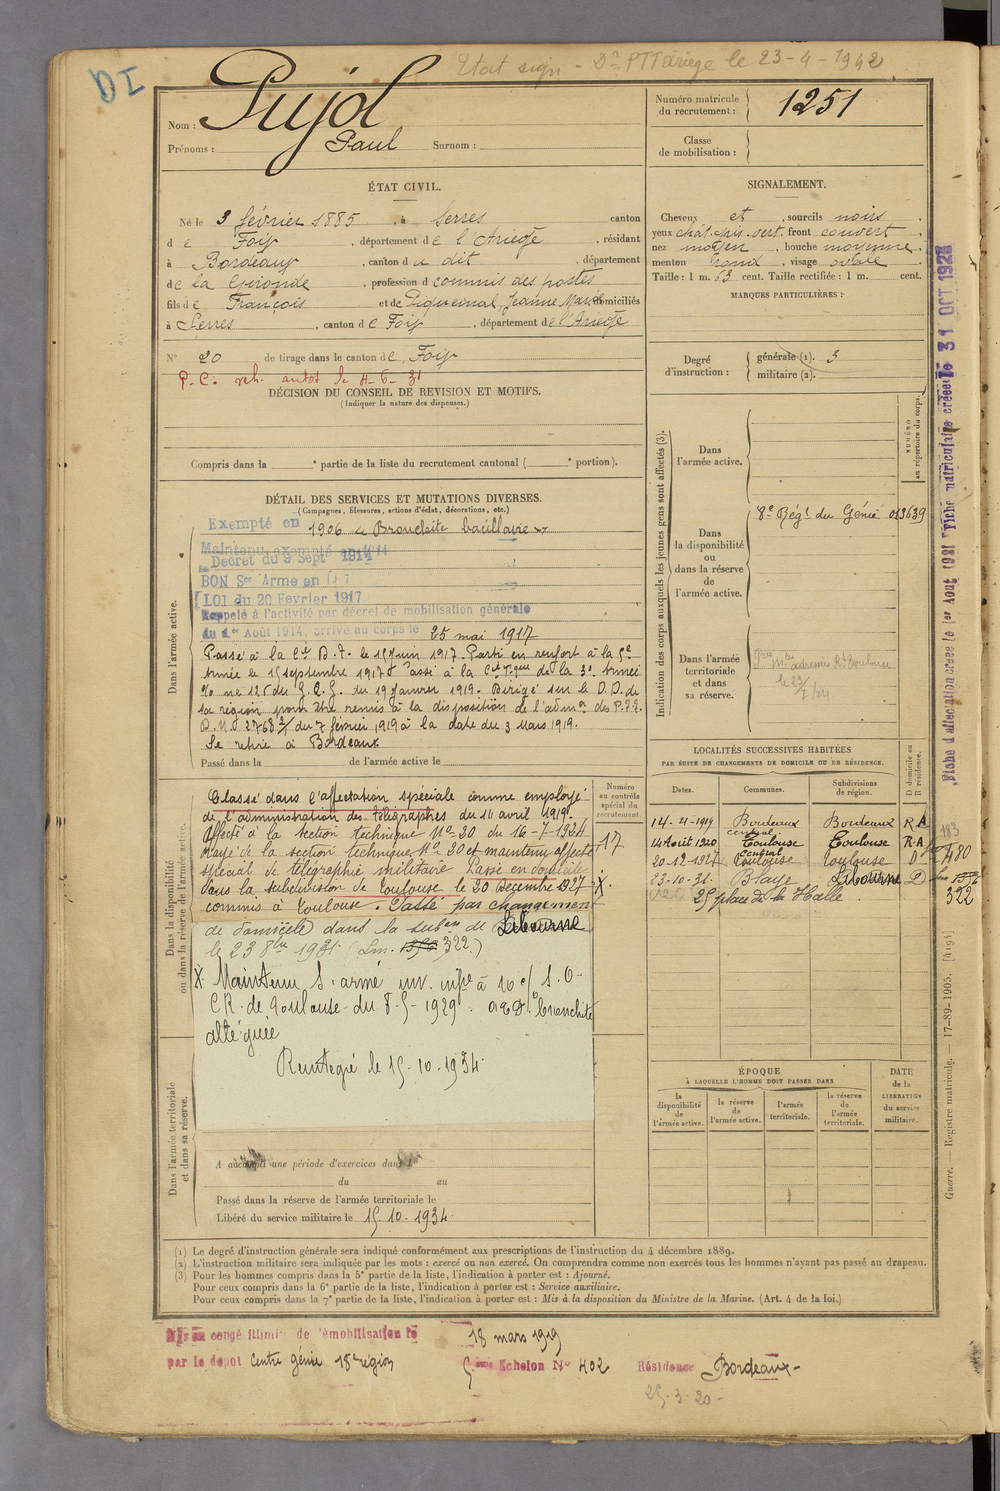 DI
Etat sign - Don PTT Ariège le 23-4-1942
Nom : Pujol
Prénoms : Paul Surnom :
Numéro matricule du recrutement : 1251
Classe de mobilisation :
ÉTAT CIVIL.
Né le 3 février 1885, à Serres canton
de Foix, département de l'Ariège, résidant
à Bordeaux, canton du dit, département
de la Gironde, profession d commis des postes
fils de François et de Piquemal, Jeanne Marie domiciliés
à Serres, canton de Foix, département de l'Ariège
N° 20 de tirage dans le canton de Foix
P. C. reh. autos le 4-6-31
DÉCISION DU CONSEIL DE REVISION ET MOTIFS.
(Indiquer la nature des dispenses.)
Compris dans la ° partie de la liste du recrutement cantonal ( ° portion).
SIGNALEMENT.
Cheveux et , sourcils noirs,
yeux chât. gris-vert, front couvert,
nez moyen, bouche moyenne,
menton rond, visage ovale
Taille : 1 m. 63 cent. Taille rectifiée : 1 m. cent.
MARQUES PARTICULIÈRES :
Degré d'instruction : générale (1). 3
militaire (2).
DÉTAIL DES SERVICES ET MUTATIONS DIVERSES.
(Campagnes, blessures, actions d'éclat, décorations, etc.)
Dans l'armée active.
Exempté en 1906 « Bronchite bacillaire »
Maintenu exempté en 1914
Décret du 9 Sept 1914
BON Sce Armé en 1917
LOI du 20 Fevrier 1917
Rappelé à l'activité par décret de mobilisation générale
du 1er Août 1914, arrivé au corps le 25 mai 1917
Passé à la Cie D.T. le 15 Juin 1917. Parti en renfort à la 5e
Armée le 15 septembre 1917. Passé à la Cie T.que de la 3e Armée
N° 125 du G.Q.G. du 19 Janvier 1919. Dirigé sur le D.D. de
sa région pour être remis à la disposition de l'admon des P.T.T.
D.M. 2768 3/ du 7 février 1919 à la date du 3 Mars 1919.
Se retire à Bordeaux
Passé dans la de l'armée active le
Dans la disponibilité ou dans la réserve de l'armée active.
Classé dans l'affectation spéciale comme employé
de l'administration des télégraphes du 14 avril 1919.
Affecté à la section technique N° 30 du 16-7-1924
rayé de la section technique N° 30 et maintenu affecté
spécial de télégraphie militaire Passé en domicile
dans la subdivision de Toulouse le 20 Décembre 1927
commis à Toulouse. Passé par changement
de domicile dans la subon de Libourne
le 23 8bre 1931. (Lm. 322.)
X Maintenu S. armé inv. infre à 10 % S.O-
CR. de Toulouse du 8-5-1929. bronchite
alléguée
Réintegré le 15-10-1934
Numéro au contrôle spécial du recrutement.
17
X
Dans l'armée territoriale et dans sa réserve.
A accompli une période d'exercices dans l
du au
Passé dans la réserve de l'armée territoriale le
Libéré du service militaire le 15-10-1934
Indication des corps auxquels les jeunes gens sont affectés (3).
NUMÉRO au répertoire du corps.
Dans l'armée active.
Dans la disponibilité ou dans la réserve de l'armée active.
8e Régt du Génie 013639
Dans l'armée territoriale et dans sa réserve.
LOCALITÉS SUCCESSIVES HABITÉES
PAR SUITE DE CHANGEMENTS DE DOMICILE OU DE RÉSIDENCE.
Dates. Communes. Subdivisions de région. D domicile ou R résidence.
14-4-1919 Bordeaux Bordeaux R A
central
14 Août 1920 Toulouse Toulouse R-A
central
20-12-1927 Toulouse Toulouse D 480
23-10-31. Blaye Libourne D
25 place de la Halle
322
ÉPOQUE
À LAQUELLE L'HOMME DOIT PASSER DANS
la disponibilité de l'armée active.
la réserve de l'armée active.
l'armée territoriale.
la réserve de l'armée territoriale.
DATE de la LIBÉRATION du service militaire.
Fiche d'affectation créée le 1er Août 1921 Fiche matriculaire créée le 31 OCT 1928
Guerre. — Registre matricule. — 17-89-1905. [4191]
(1) Le degré d'instruction générale sera indiqué conformément aux prescriptions de l'instruction du 4 décembre 1889.
(2) L'instruction militaire sera indiquée par les mots : exercé ou non exercé. On comprendra comme non exercés tous les hommes n'ayant pas passé au drapeau.
(3) Pour les hommes compris dans la 5e partie de la liste, l'indication à porter est : Ajourné.
Pour ceux compris dans la 6e partie de la liste, l'indication à porter est : Service auxiliaire.
Pour ceux compris dans la 7e partie de la liste, l'indication à porter est : Mis à la disposition du Ministre de la Marine. (Art. 4 de la loi.)
Mis en congé illimité de démobilisation le 18 mars 1919
par le dépot Centre génie 18e région 5ème Echelon N° 402 Résidence Bordeaux-
25-3-20-